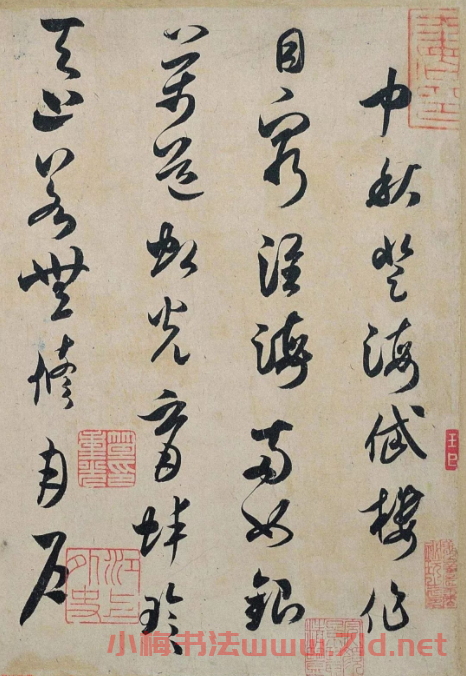 中秋登海岱樓作
目窮淮海兩如銀
萬道虹光育蚌珍
天上若無修月戶
笪重光印
江上外史
小梅书法www.7ld.net